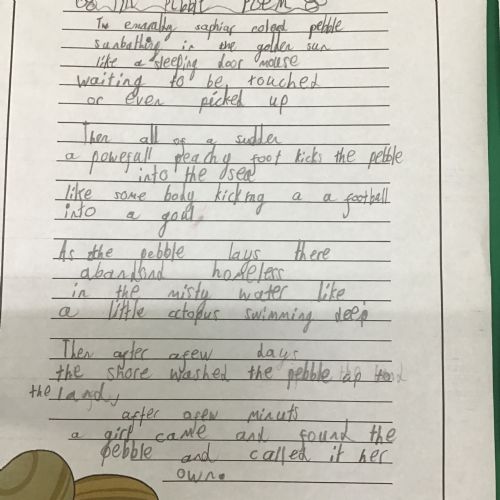 The Pebble Poem
The emeraldy saphiar colored pebble
sunbathing in the golden sun
like a sleeping door mouse
waiting to be touched
or even picked up
Then all of a sudden
a powerfull peachy foot kicks the pebble
into the sea
like some body kicking a a football
into a goal.
As the pebble lays there
abandond homeless
in the misty water like
a little octopus swimming deep
Then after afew days
the shore washed the pebble
the land,
after afew minuts
a girl came and found the
pebble and called it her
own.